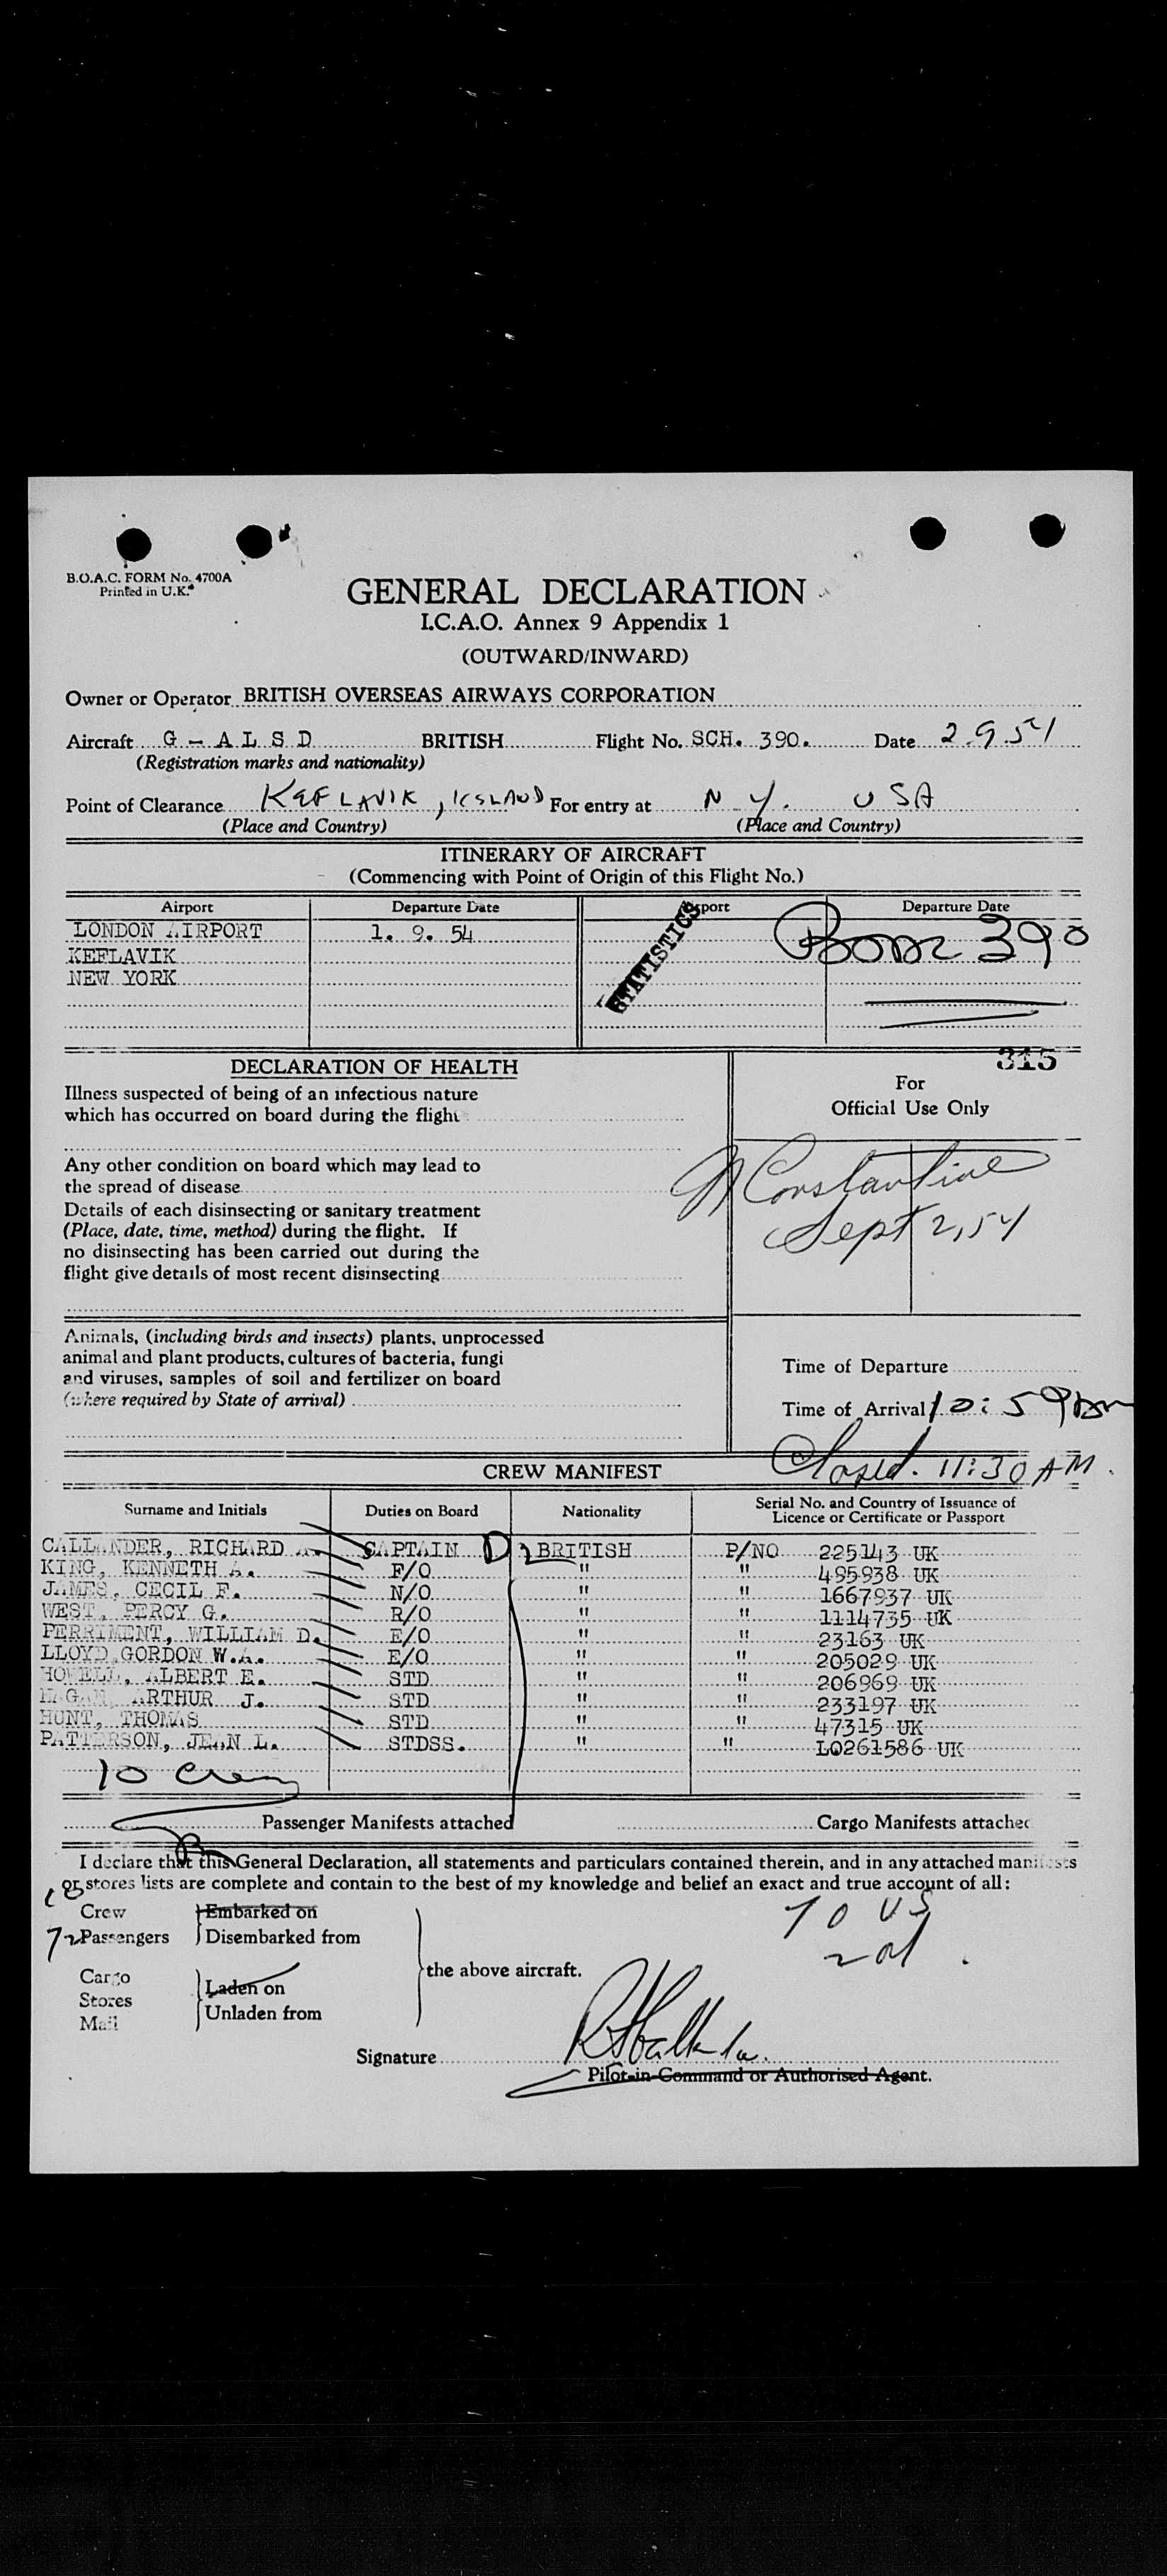 B.O.A.C. FORM No. 4700A
Printed in U.K.
GENERAL DECLARATION
I.C.A.O. Annex 9 Appendix 1
(OUTWARD/INWARD)
Owner or Operator BRITISH OVERSEAS AIRWAYS CORPORATION
Aircraft G - A L S D BRITISH Flight No. SCH. 390. Date 2.9.54
(Registration marks and nationality)
Point of Clearance KEFLAVIK, For entry at N.Y. USA
(Place and Country) (Place and Country)
ITINERARY OF AIRCRAFT
(Commencing with Point of Origin of this Flight No.)
Airport Departure Date Departure Date
LONDON AIRPORT 1. 9. 54 STATISTICS 390
KEFLAVIK
NEW YORK
315
DECLARATION OF HEALTH
For
Official Use Only
Illness suspected of being of an infectious nature
which has occurred on board during the flight
Any other condition on board which may lead to
the spread of disease
Constantine
Sept 2, 54
Details of each disinsecting or sanitary treatment
(Place, date, time, method) during the flight. If
no disinsecting has been carried out during the
flight give details of most recent disinsecting
Animals, (including birds and insects) plants, unprocessed
animal and plant products, cultures of bacteria, fungi
and viruses, samples of soil and fertilizer on board
(where required by State of arrival)
Time of Departure
Time of Arrival 10:59
Closed. 11:30 AM.
CREW MANIFEST
Surname and Initials Duties on Board Nationality Serial No. and Country of Issuance of
Licence or Certificate or Passport
CALLANDER, RICHARD CAPTAIN D2 BRITISH P/NO 225143 UK
KING, KENNETH A. F/O " " 495938 UK
JAMES, CECIL F. N/O " " 1667937 UK
WEST, PERCY G. R/O " " 1114735 UK
PERRIMENT, WILLIAM D. E/O " " 23163 UK
LLOYD, GORDON W.A. E/O " " 205029 UK
HOWELL, ALBERT E. STD " " 206969 UK
ARTHUR J. STD " " 233197 UK
HUNT, THOMAS STD " " 47315 UK
PATTERSON, JEAN L. STDSS. " " L0261586 UK
10 Crew
Passenger Manifests attached Cargo Manifests attached
I declare that this General Declaration, all statements and particulars contained therein, and in any attached manifests
or stores lists are complete and contain to the best of my knowledge and belief an exact and true account of all:
10 Crew Embarked on
72 Passengers Disembarked from
70 US
the above aircraft.
Cargo Laden on
Stores Unladen from
Mail
Signature
Pilot-in-Command or Authorised Agent.